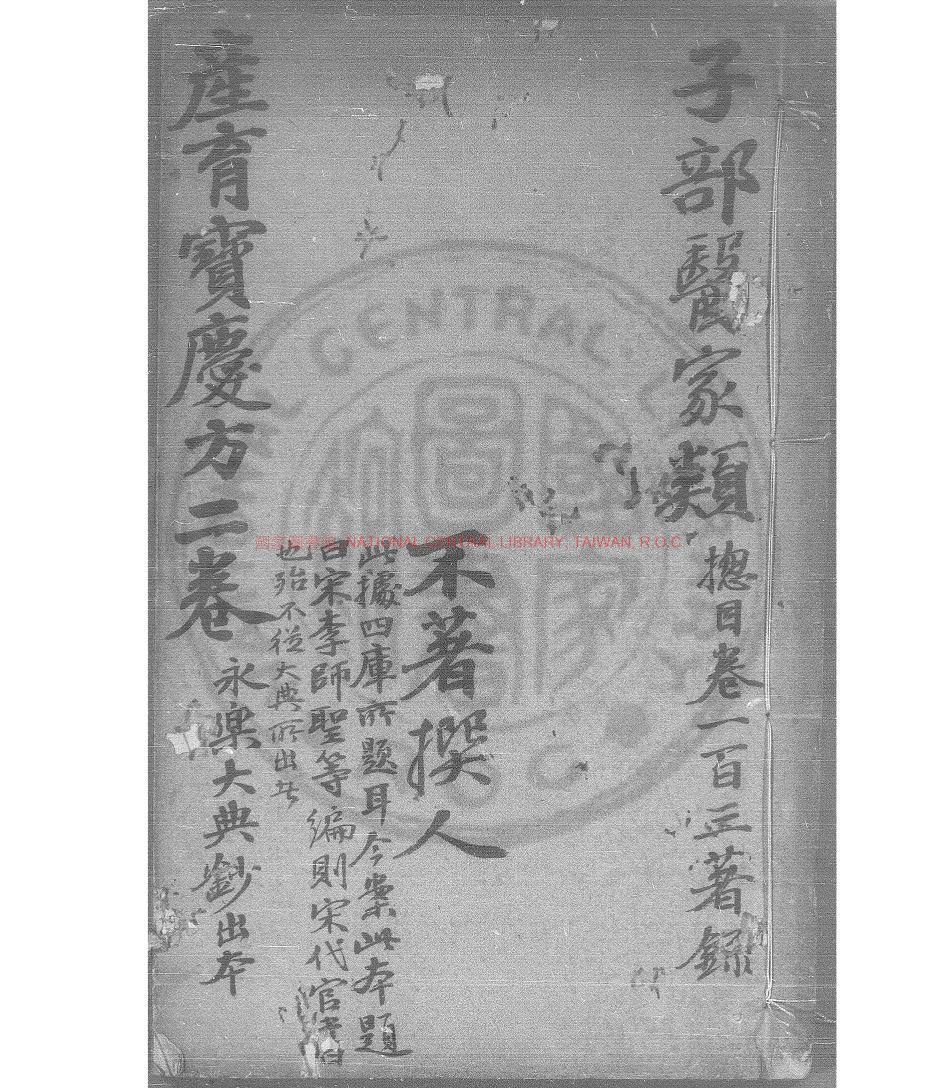 子部醫家類 總目卷一百三著錄
不著撰人
此據四庫所題耳今案此本題
曰宋李師聖等編則宋代官書
也殆不從大典所出者
產育寶慶方二卷 永樂大典鈔出本
國家圖書館 NATIONAL CENTRAL LIBRARY, TAIWAN, R.O.C
CENTRAL